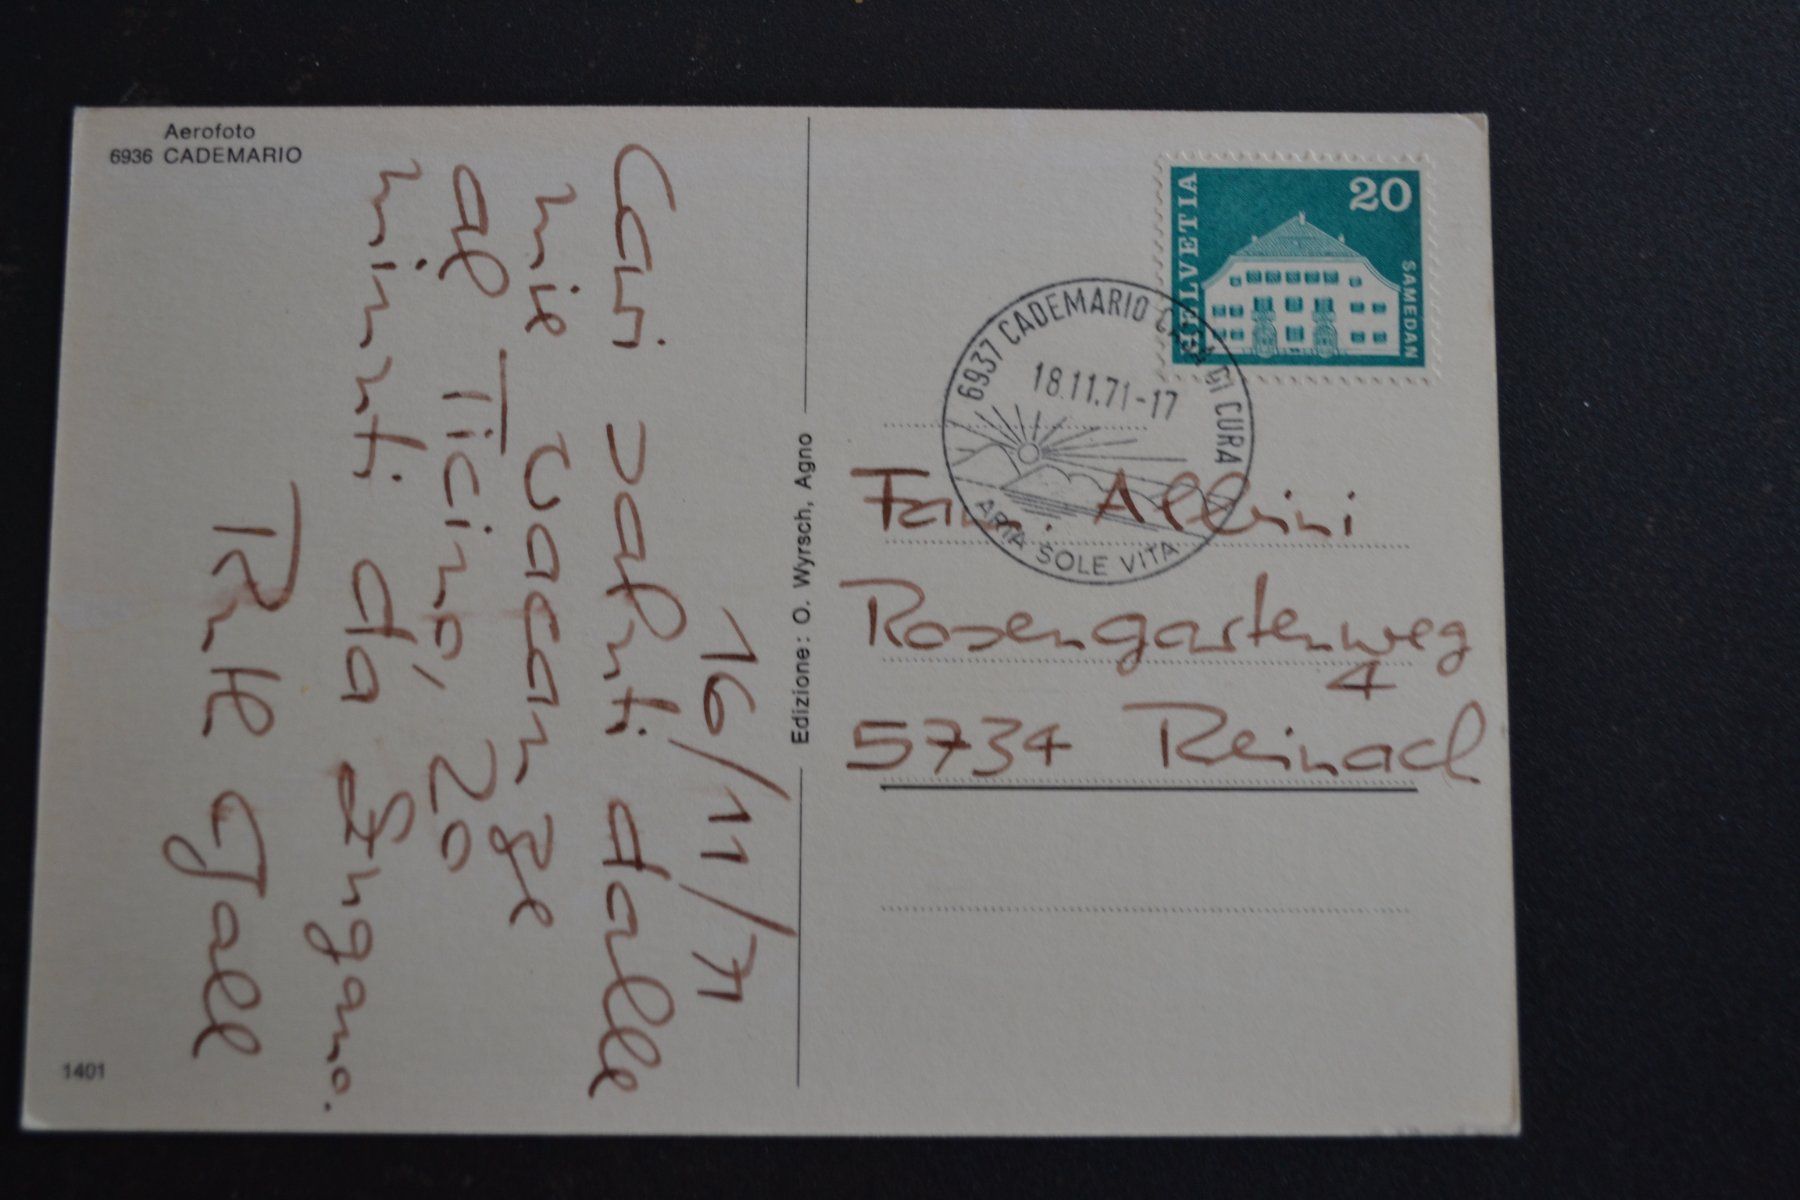 Aerofoto
6936 CADEMARIO
16/11/71
Cari saluti dalle
mie vacanze
al Ticino, 20
minuti da Lugano.
Ruth Gall
1401
Edizione: O. Wyrsch, Agno
HELVETIA
20
SAMEDAN
6937 CADEMARIO CASA DI CURA
18.11.71-17
ARIA SOLE VITA
Fam. Albini
Rosengartenweg
4
5734 Reinach